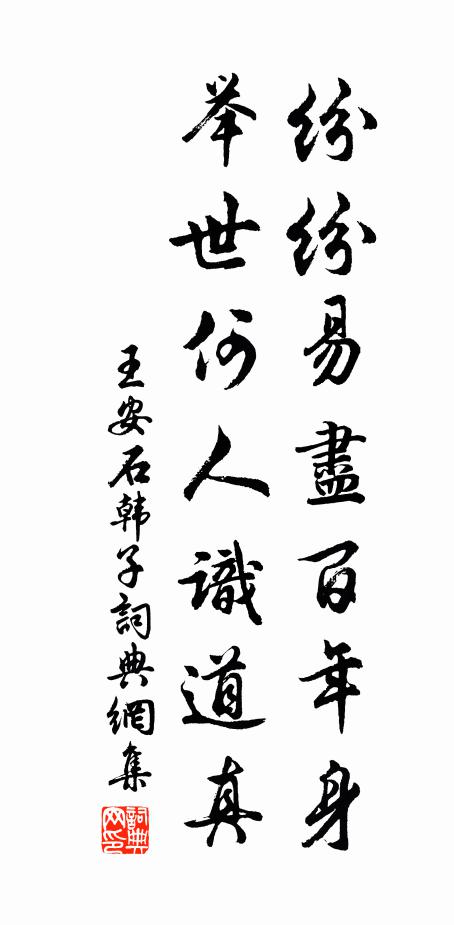 纷纷易盡百年身
举世何人識道真
王安石韩子詞典網集
詞典网印